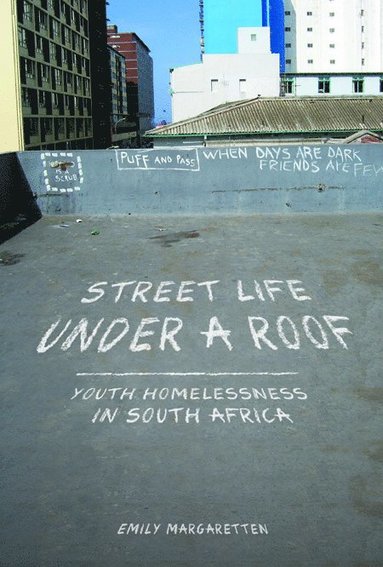 PUFF AND PASS
WHEN DAYS ARE DARK
FRIENDS ARE FEW
IS A
SCRUB
STREET LIFE
UNDER A ROOF
YOUTH HOMELESSNESS
IN SOUTH AFRICA
EMILY MARGARETTEN